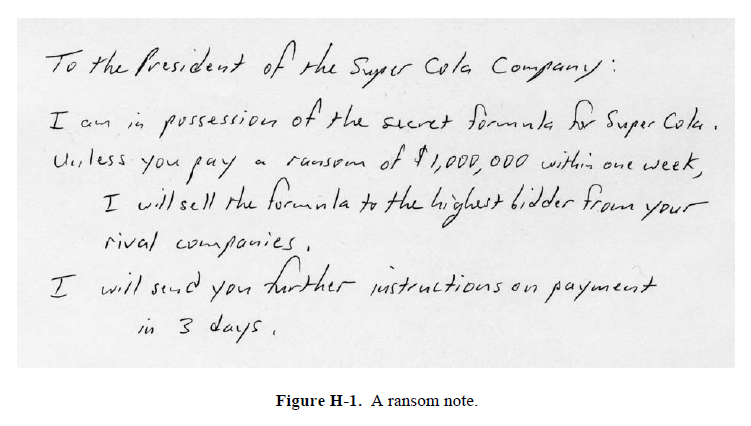 To the President of the Super Cola Company:
I am in possession of the secret formula for Super Cola.
Unless you pay a ransom of $1,000,000 within one week,
I will sell the formula to the highest bidder from your
rival companies.
I will send you further instructions on payment
in 3 days.
Figure H-1. A ransom note.